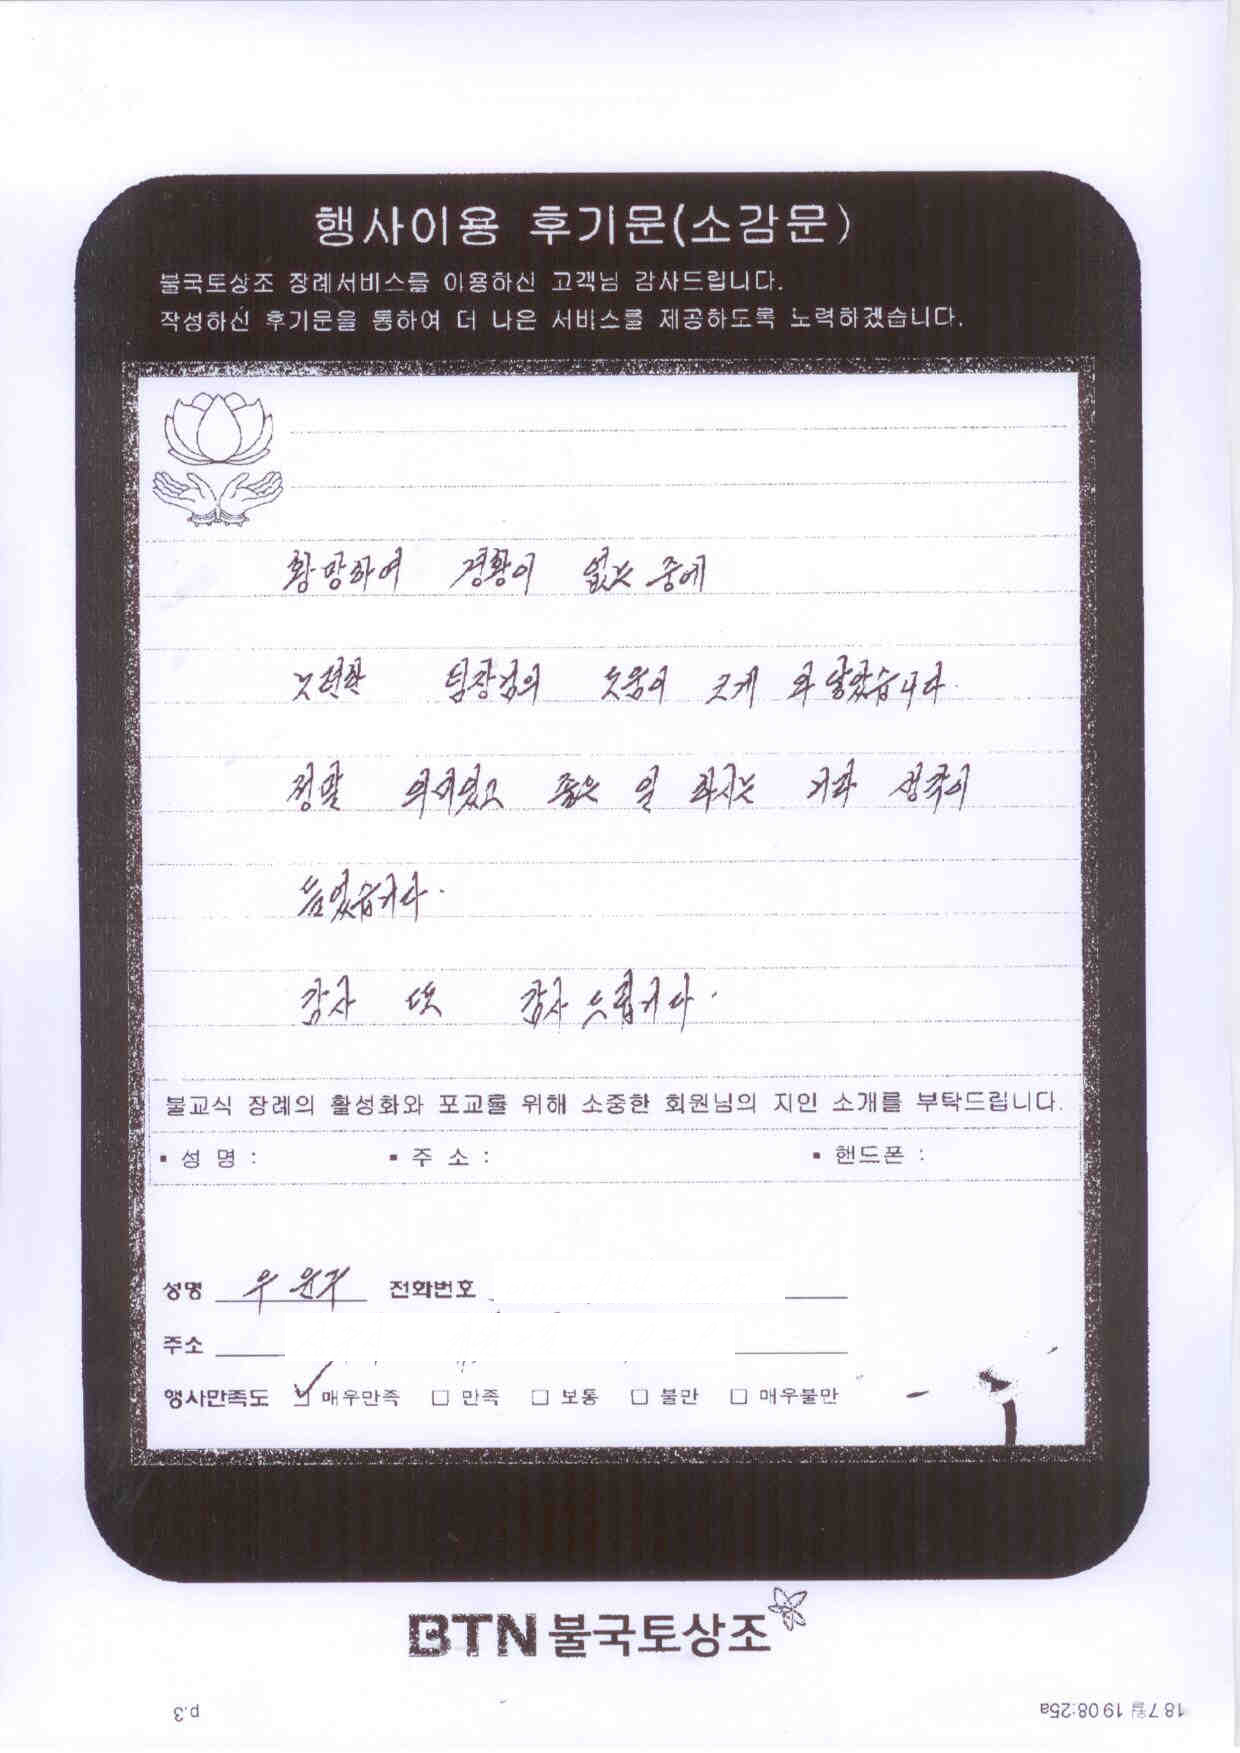 행사이용 후기문(소감문)
불국토상조 장례서비스를 이용하신 고객님 감사드립니다.
작성하신 후기문을 통하여 더 나은 서비스를 제공하도록 노력하겠습니다.
황망하여 경황이 없는 중에
노련한 팀장님의 도움이 크게 와 닿았습니다.
정말 좋은 일 하시는 거라 생각이
듬었습니다.
감사 또 감사드립니다.
불교식 장례의 활성화와 포교를 위해 소중한 회원님의 지인 소개를 부탁드립니다.
▪ 성 명 : ▪ 주 소 : ▪ 핸드폰 :
성명 우윤규 전화번호
주소
행사만족도 ☑ 매우만족 □ 만족 □ 보통 □ 불만 □ 매우불만
BTN 불국토상조
18 7월 19 08:25a p.3